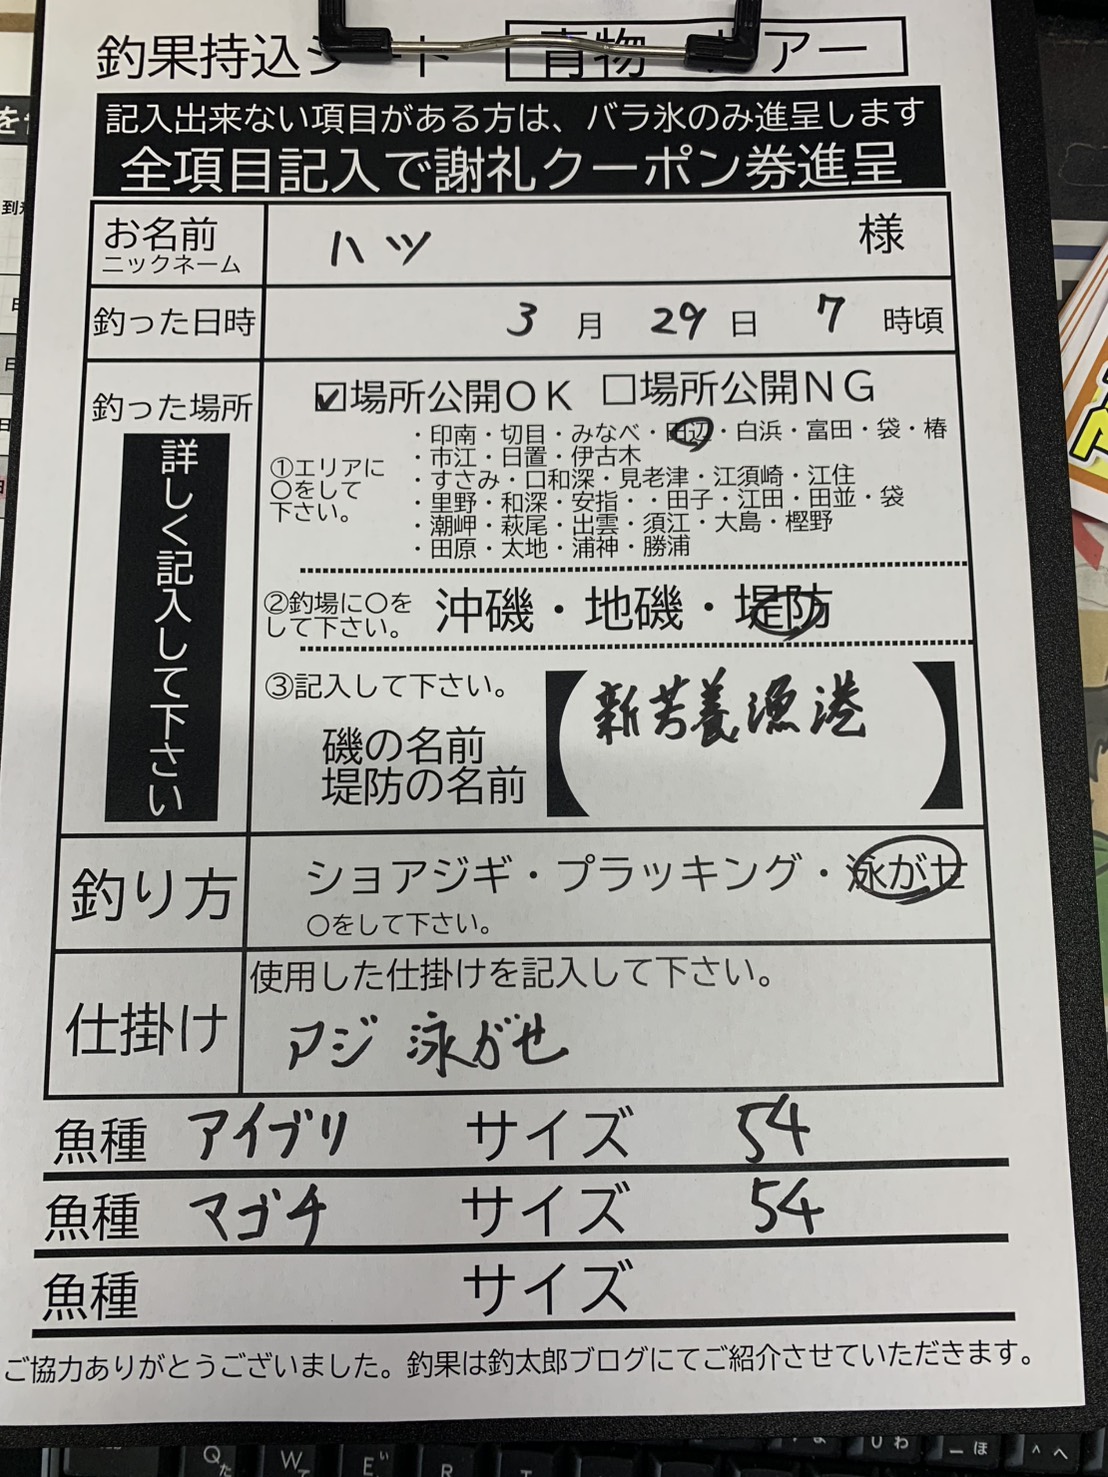 釣果持込シート 青物 ルアー
記入出来ない項目がある方は、バラ氷のみ進呈します
全項目記入で謝礼クーポン券進呈
お名前 ハツ 様
ニックネーム
釣った日時 3 月 29 日 7 時頃
釣った場所 ☑場所公開OK □場所公開NG
詳しく記入して下さい
①エリアに
〇をして
下さい。
・印南・切目・みなべ・田辺・白浜・富田・袋・椿
・市江・日置・伊古木
・すさみ・口和深・見老津・江須崎・江住
・里野・和深・安指・・田子・江田・田並・袋
・潮岬・萩尾・出雲・須江・大島・樫野
・田原・太地・浦神・勝浦
②釣場に〇を
して下さい。 沖磯・地磯・堤防
③記入して下さい。
磯の名前
堤防の名前
【新芳養漁港】
釣り方 ショアジギ・プラッキング・泳がせ
〇をして下さい。
仕掛け 使用した仕掛けを記入して下さい。
アジ 泳がせ
魚種 アイブリ サイズ 54
魚種 マゴチ サイズ 54
魚種 サイズ
ご協力ありがとうございました。釣果は釣太郎ブログにてご紹介させていただきます。